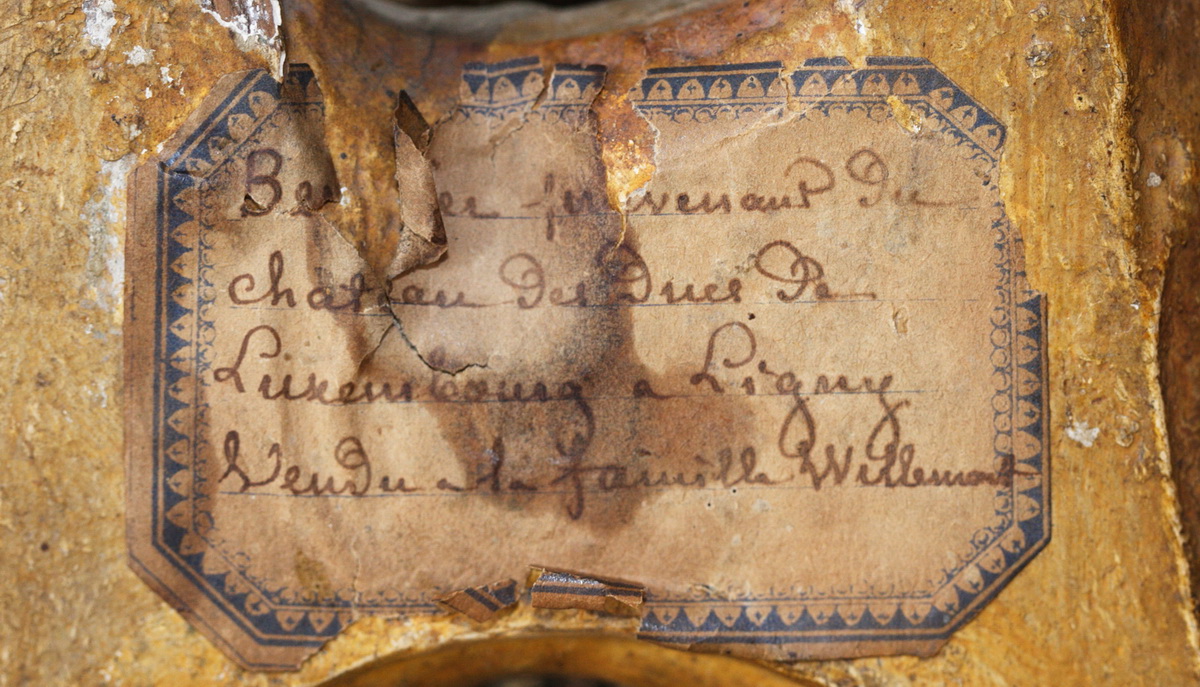 provenant du
chateau des Ducs de
Luxembourg a Ligny
Vendu a la famille Willemart